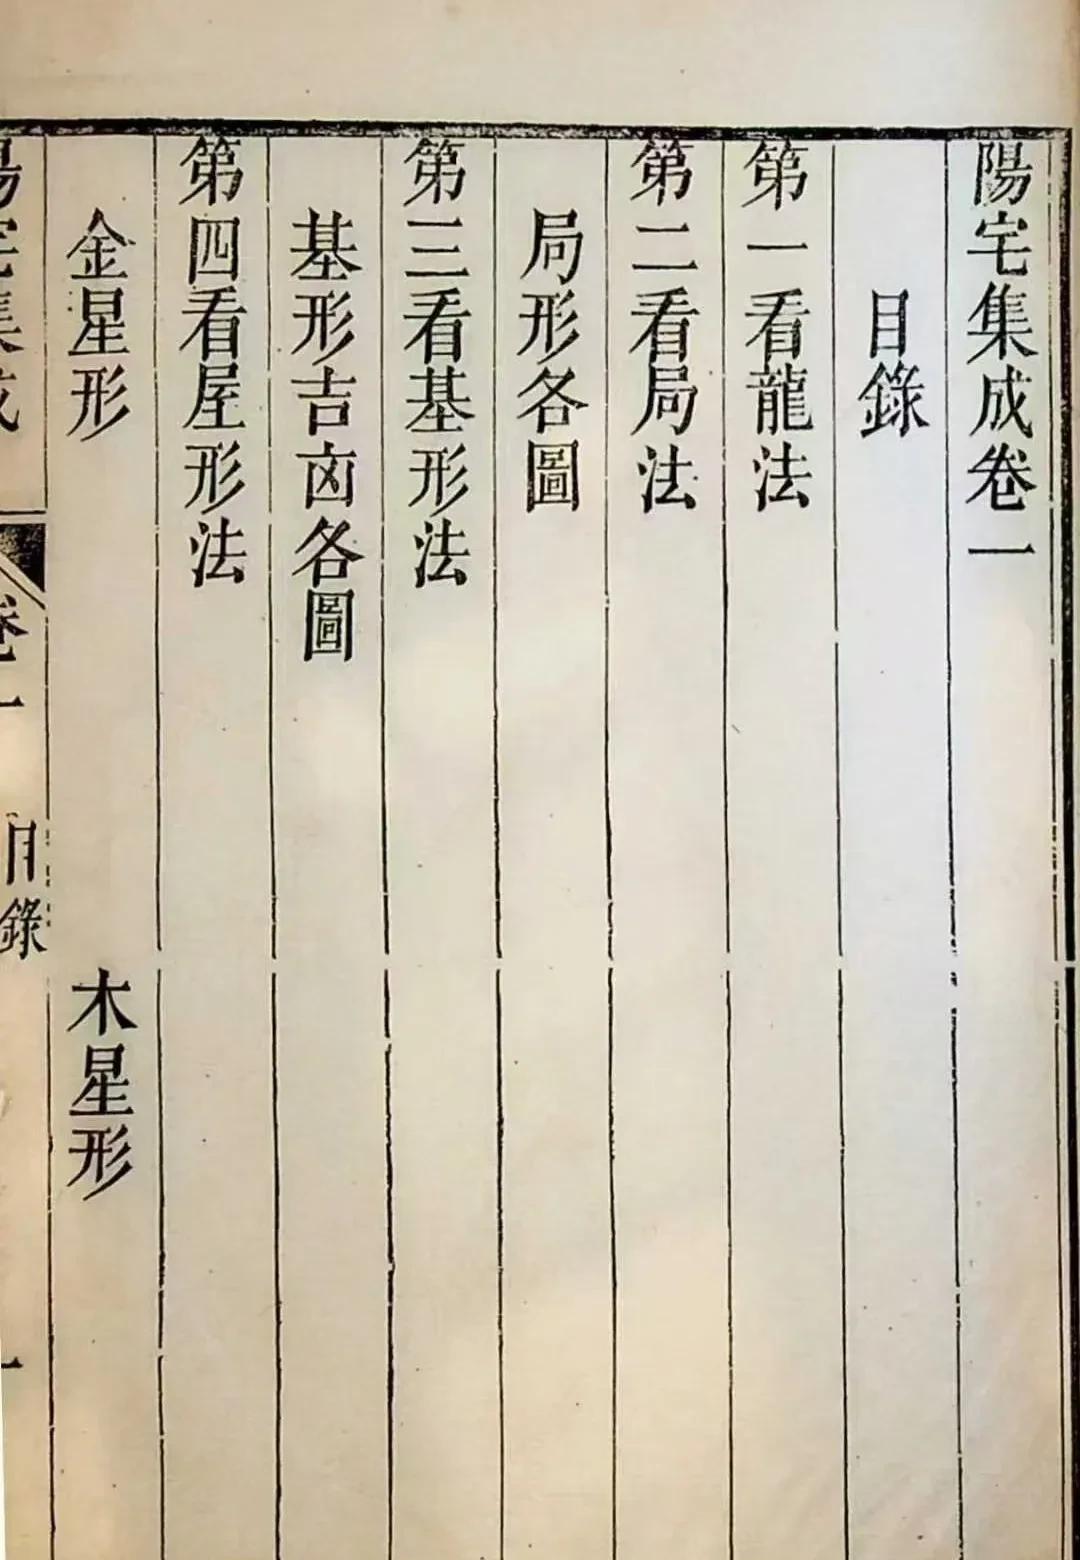 陽宅集成卷一
目錄
第一看龍法
第二看局法
局形各圖
第三看基形法
基形吉凶各圖
第四看屋形法
金星形 木星形
陽宅集成 卷一 目錄 一